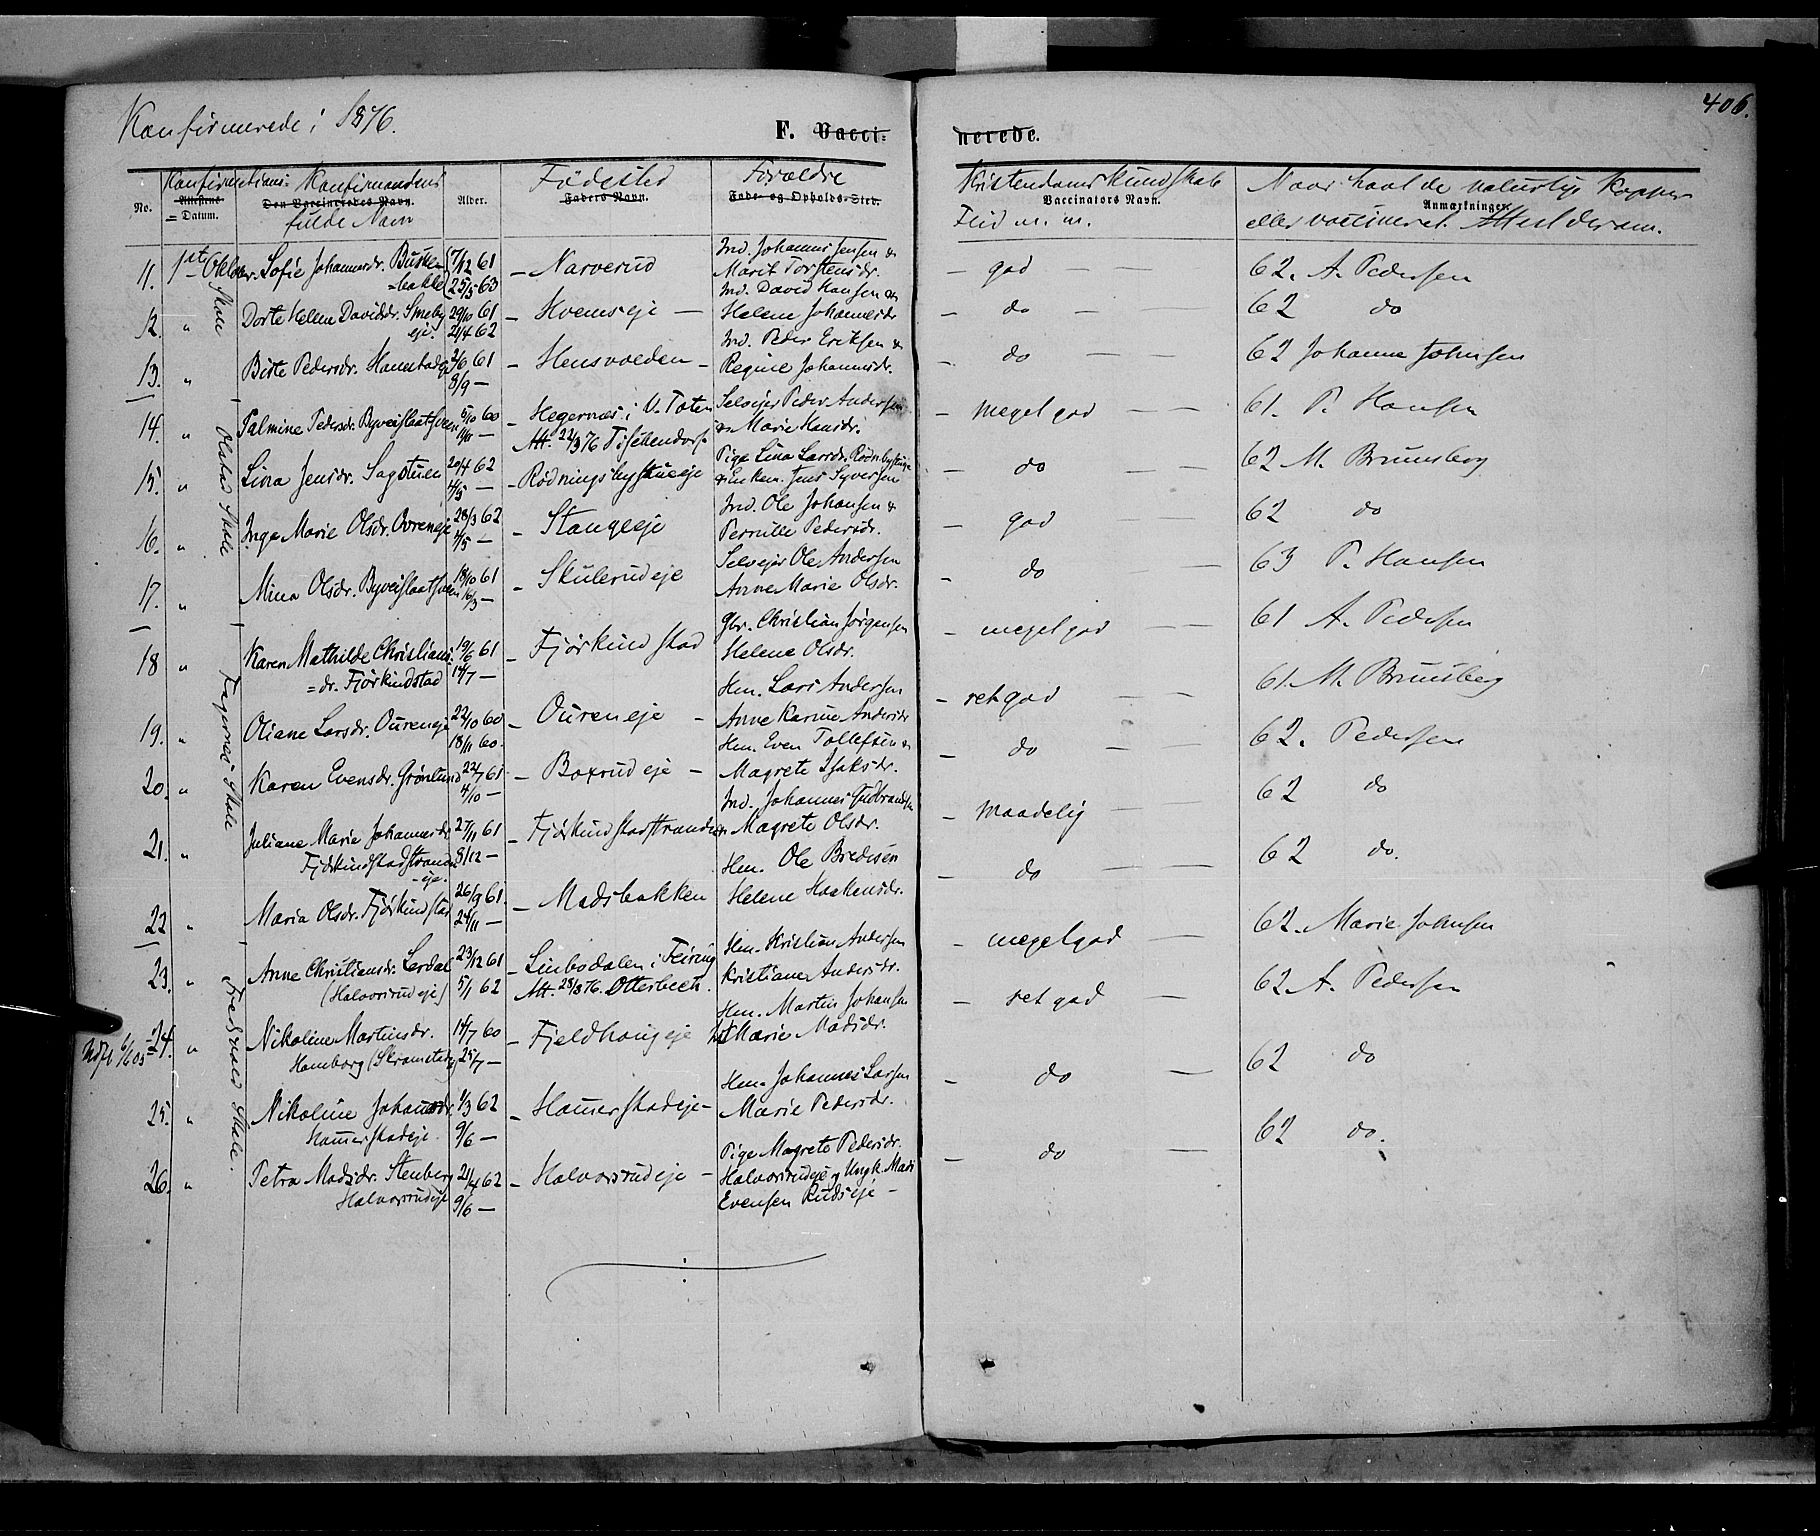 Konfirmerede i 1876.
F. Vacci-
nerede.
406.
No.
Konfirmations-
Attestens
Datum.
Konfirmandens
Den Vaccineredes Navn.
fulde Navn
Alder.
Födested
Faders Navn.
Forældre
Føde- og Opholds-Sted.
Kristendomskundskab
Vaccinators Navn.
Flid m. m.
Naar havt de naturlige Kopper
Anmærkninger.
eller vaccineret. Attest derom.
Skole
Olstad Skole
Fagernes Skole
Fredsvold Skole.
11. 1st Oktbr. Sofie Johannesdr. Busken- 7/12 61 – Narverud Ind. Johannes Jensen & – god – – 62. A. Pedersen
=bakke 25/5 63 Marit Torstensdr.
12. " Dorte Helene Davidsdr. Smeby 29/10 61 – Hvemseje – Ind. David Hansen & – do – 62 do
eje. 21/4 62 Helene Johannesdr
13. " Birte Pedersdr. Hanestadeje 2/6 61 – Hensvolden – Ind. Peder Eriksen & – do – – 62 Johanne Johnsen
8/9 – Regine Johannesdr.
14. " Palmine Pedersdr. Byveislaatsveen 5/10 60 – Hegernæs i V. Toten Selveier Peder Andersen – meget god – – 61. P. Hansen
Att. 22/3 76 & Marie Hansdr.
15. " Lina Jensdr. Sagstuen 20/4 62 – Rödningsbystueeje Pige Lina Larsdr. – do – – 62 M. Brunsberg
4/5 – & Enkem. Jens Syversen
16. " Inga Marie Olsdr. Ovreneje 28/3 62 – Stangeeje Ind. Ole Johansen & – god – – 62 do
4/5 – Pernille Pedersdr.
17. " Mina Olsdr. Byveislaatsveen 18/10 61 – Skulerudeje Selveier Ole Andersen – do – – 63 P. Hansen
16/3 – Anne Marie Olsdr.
18 " Karen Mathilde Christians- 19/6 61 – Fjörkindstad Gbr. Christian Jörgensen – meget god – – 61 A. Pedersen
=dr. Fjörkindstad 14/7 – Helene Olsdr.
19. " Oliane Larsdr. Oureneje 22/10 60 – Oureneje – Hm. Lars Andersen – ret god – – 61. M. Brunsberg
18/11 60. Anne Karine Andersdr
20. " Karen Evensdr. Grönlund 22/7 61 – Boxrudeje – Hm. Even Tollefsen & – do – – 62. Pedersen
4/10 – Magrete Isaksdr.
21. " Juliane Marie Johannesdr 27/11 61 – Fjörkindstadstranden Ind. Johannes Gudbrandsen – maadelig – – 62 do
Fjörkindstadstranden 8/12 – & Magrete Olsdr.
-eje.
22 " Maria Olsdr. Fjörkindstad 26/9 61. – Madsbakken Hm. Ole Bredesen – do – – 62 do.
24/11 – Helene Haakensdr.
23. " Anne Christiansdr. Lerdal 23/12 61 – Linbödalen i Feiring Hm. Kristian Andersen – meget god – 62. Marie Johnsen
(Halvorsrudeje) 5/1 62 Att. 28/8 76. Otterbech. Kristiane Andersdr.
24. " Nikoline Martinsdr. 14/7 60 – Fjeldhougeje Hm. Martin Johansen – ret god – 62 A. Pedersen
Homborg 25/7 – Marie Madsdr.
25. " Nikoline Johansdr. 1/3 62 – Hamerstadeje – Hm. Johannes Larsen – do – 62 do
Hamerstadeje. 9/6 – Marie Pedersdr.
26. " Petra Madsdr. Stenberg 21/4 62 – Halvorsrudeje – Pige Magrete Pedersdr. – do – 62 do.
Halvorsrudeje 9/6 – Halvorsrudeje & Ungk. Mads
Evensen Rudseje –